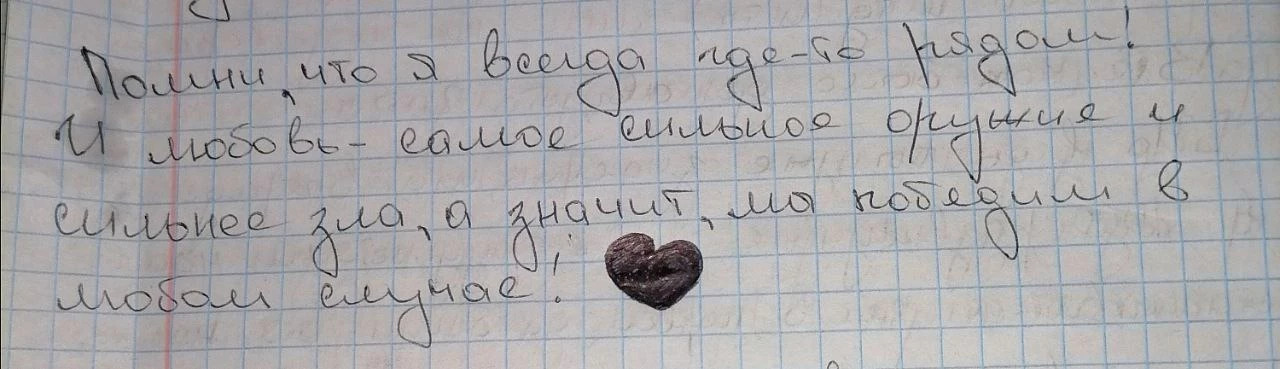 Помни, что я всегда где-то рядом!
И любовь - самое сильное оружие и
сильнее зла, а значит, мы победим в
любом случае!